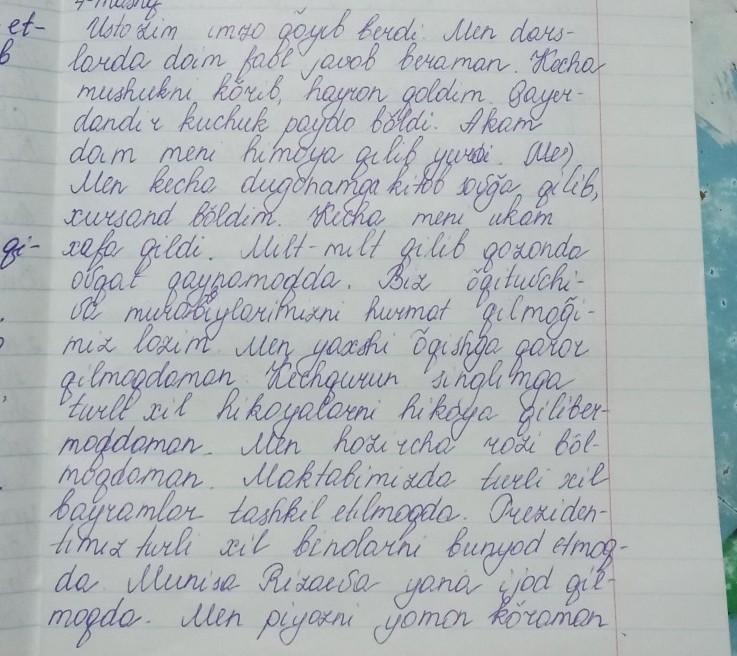 4-mashq
et- Ustozim imzo qöyib berdi. Men dars-
b larda doim faol javob beraman. Kecha
mushukni körib, hayron qoldim. Qayer-
dandir kuchuk paydo böldi. Akam
doim meni himoya qilib yurdi. (Men)
Men kecha dugonamga kitob sovğa qilib,
xursand böldim. Kecha meni ukam
qi- xafa qildi. Milt-milt qilib qozonda
ovqat qaynamoqda. Biz öqituvchi-
va murabiylarimizni hurmat qilmoği-
miz lozim. Men yaxshi öqishga qaror
qilmoqdaman. Kechqurun singlimga
turli xil hikoyalarni hikoya qiliber-
moqdaman. Men hozircha rozi böl-
moqdaman. Maktabimizda turli xil
bayramlar tashkil etilmoqda. Preziden-
timiz turli xil binolarni bunyod etmoq-
da. Munisa Rizaeva yana ijod qil-
moqda. Men piyozni yomon köraman.